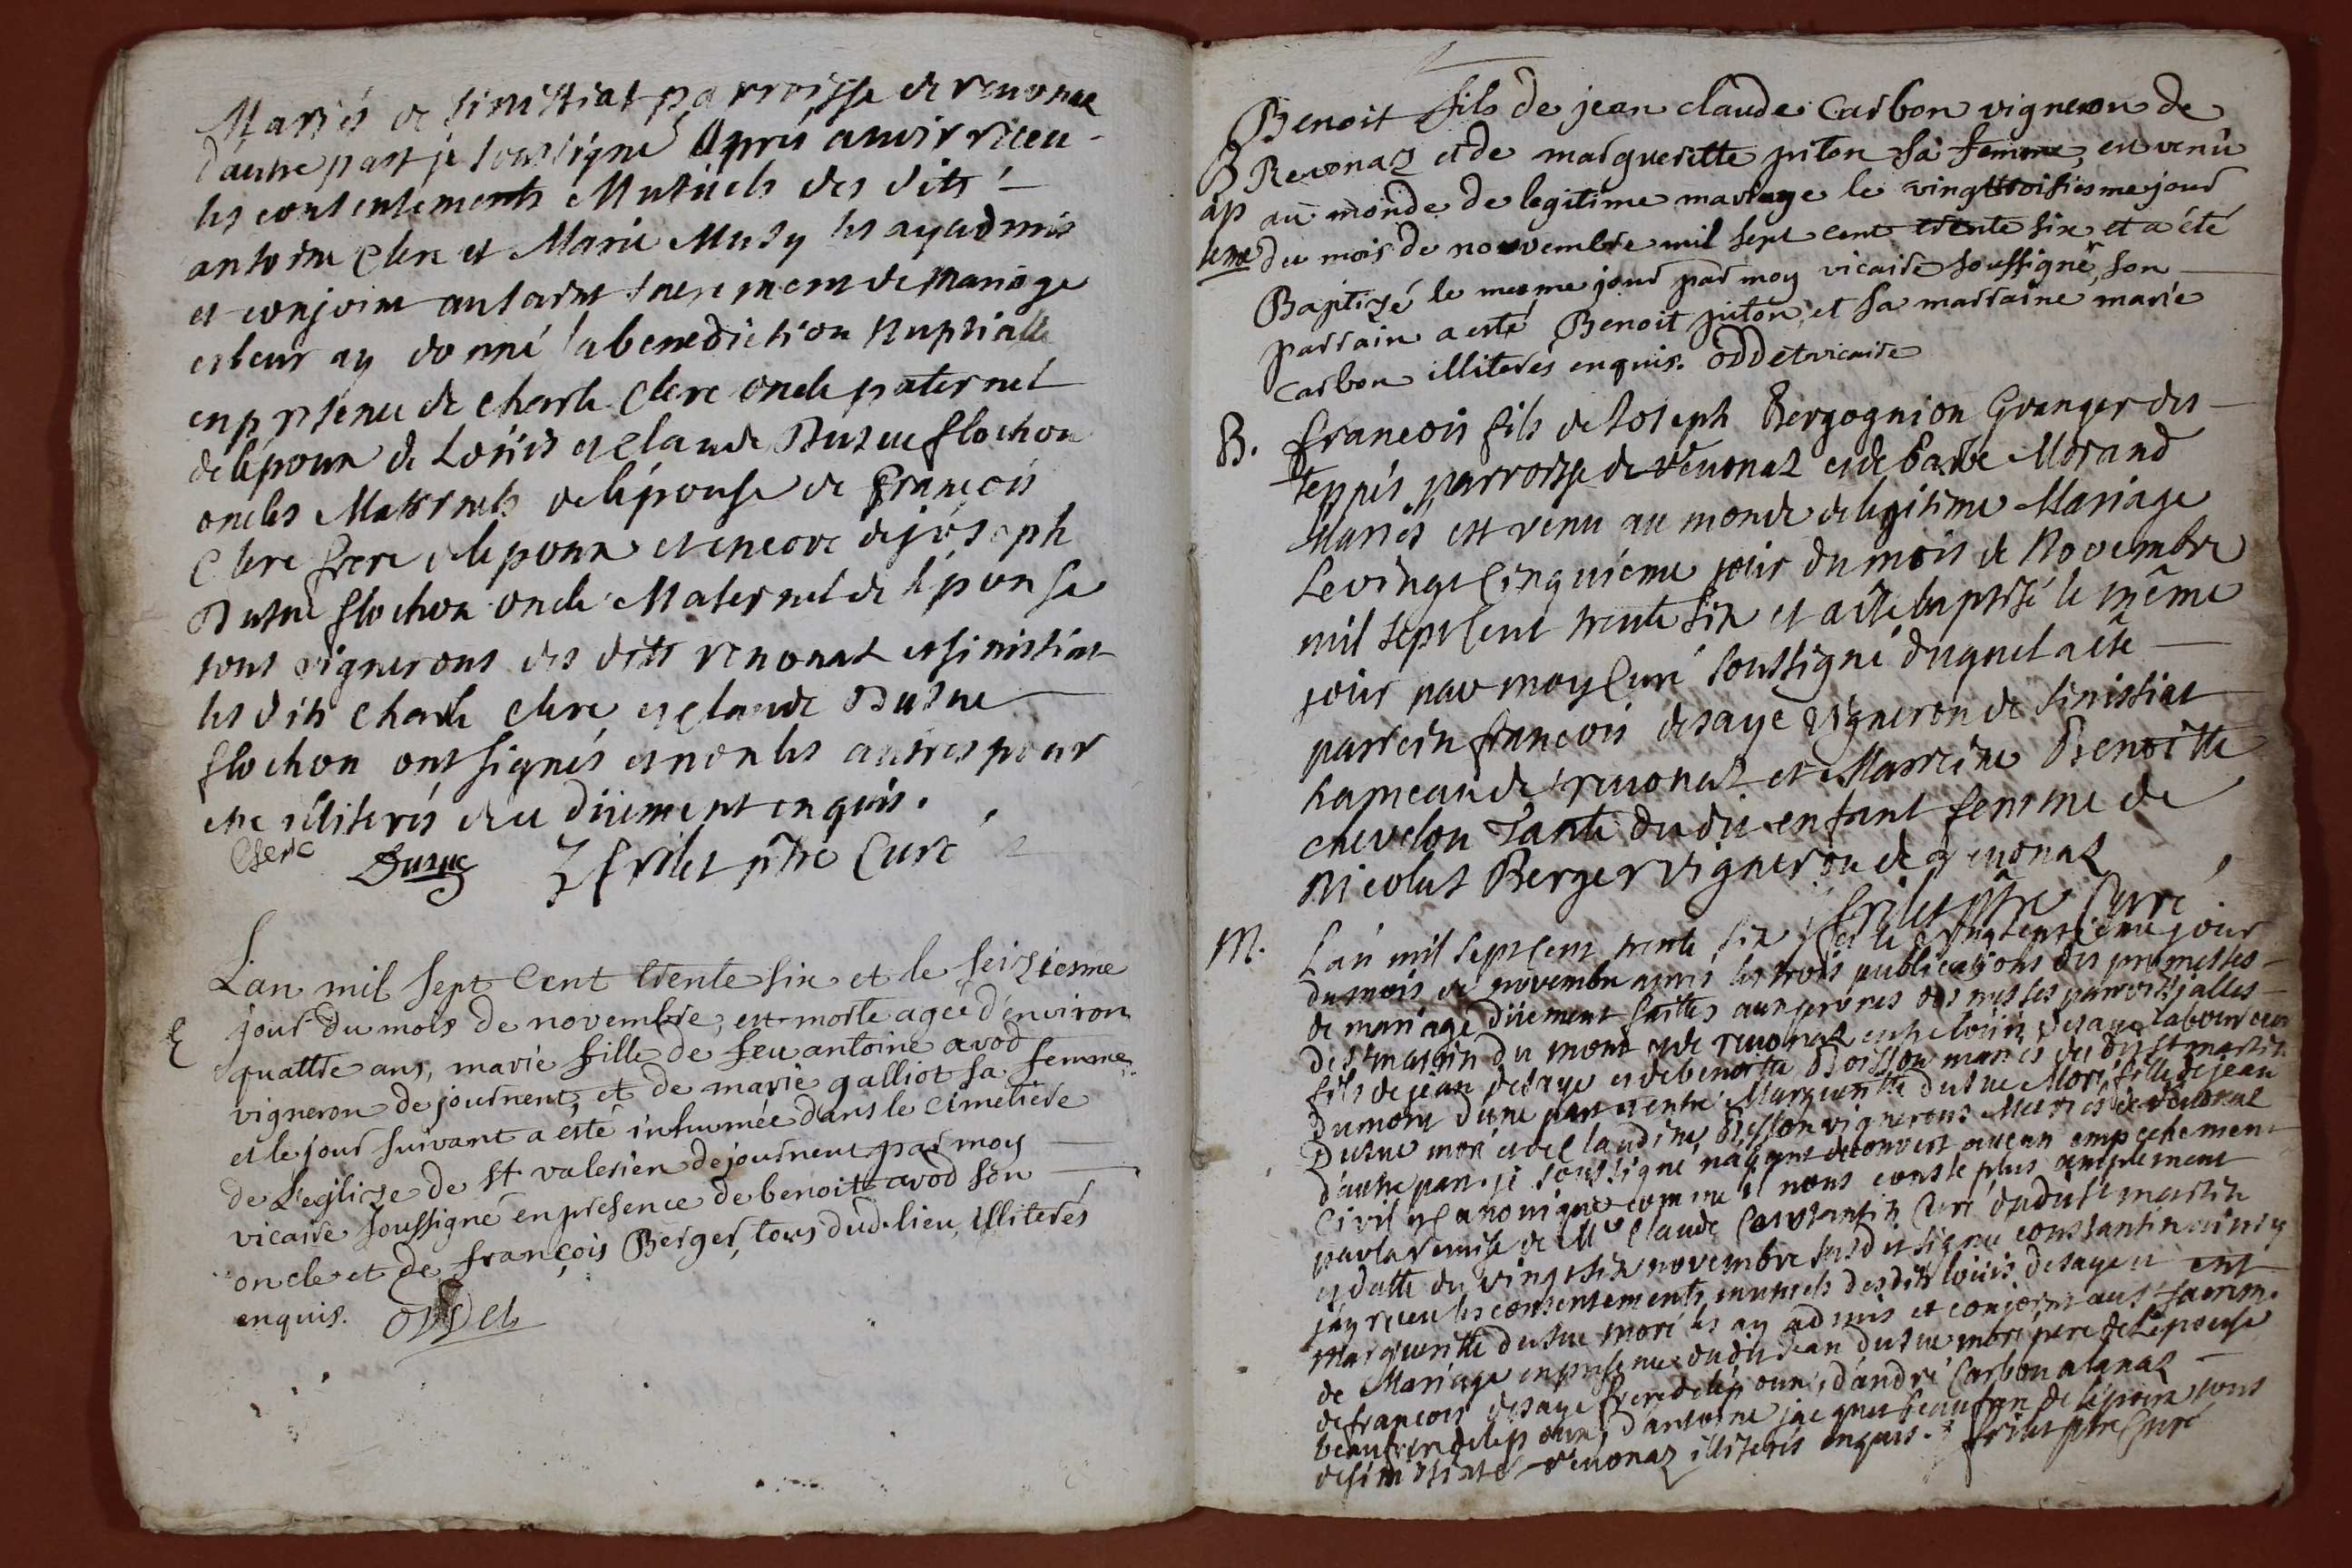 Mariés de simistiat parroisse de revonat
d'autre part je soussigné Apres avoir receu
les consentements Mutuels des dits
antoine Clerc et Marie Musy les ay admis
et conjoint au saint sacrement de Mariage
et leur ay donné la benediction Nuptialle
en presence de charle Clerc oncle paternel
de lépoux de Loüis et Claude Dusue flochon
oncles Maternels de lépouse de François
Clerc frere de lépoux et encore de jóseph
Dusue flochon oncle Maternel de lépouse
tous vignerons des dits revonat et simistiat
les dits charle clerc et claude Dusue
flochon ont signés et non les autres pour
etre illiterés de ce düement enquis.
Clerc Dusue frilet ptre Curé
Lan mil sept cent trente six et le seiziesme
jour du mois de novembre, est morte ageé d'environ
quattre ans, marie fille de feu antoine avod
vigneron de journent, et de marie galliot sa femme
et le jour suivant a esté inhumée dans le cimetiere
de L'eglize de st valerien de journent par moy
vicaire soussigné en presence de benoitt avod son
oncle et de françois Berger, tous dud. lieu, illiterés
enquis. oddet
Benoit fils de jean claude Carbon vigneron de
B Revonaz et de margueritte piton sa femme, en venû
ap au monde de legitime mariage le vingttroisiesme jour
teme du mois de nouvembre mil sept cent trente six et a été
Baptizé le mesme jour par moy vicaire soussigné, son
parrain a esté Benoit piton, et sa marraine marie
Carbon illiterés enquis. oddet vicaire
B. francois fils de Joseph Bergognion Granger des
teppes parroisse de revonaz et de barbe Morand
Mariés est venu au monde de legitime Mariage
Le vingt cinquiéme jour du mois de Novembre
mil sept cent trente six et a été baptisé le même
jour par moy Curé soussigné duquel a été
parrein francois desaye vigneron de simistiat
hameau de revonaz et Marreine Benoitte
chevelou Tante du dit enfant femme de
Nicolas Berger vigneron de revonaz
frilet ptre Curé
M. Lan mil sept cent trente six et le vingtseptiéme jour
du mois de novembre apres les trois publications des promesses
de mariage düement faittes aux prônes des messes parroissialles
de st martin du mont et de revonaz entre loüis desaye laboureur
fils de jean desaye et de benoitte Boisson mariés du dit st martin
du mont d'une part et entre Margueritte dusue Moré fille de jean
Dusue moré et de Claudine Bisson vignerons Mariés de revonat
d'autre part. je soussigné n'ayant decouvert aucun empechement
Civil et canonique comme il nous conste plus amplement
par la remise de Mre Claude Constantin Curé du dit st martin
en datte du vingtsix novembre susdit signée constantin ainsy
j'ay receu les consentements mutuels des dits loüis desaye et
Marguerritte dusue moré les ay admis et conjoint au st sacrem.
de Mariage en presence du dit jean dusue moré pere de Lépouse
de francois desaye frere de lépoux, d'andré Carbon alanaz
beaufrere de lépoux, d'antoine jacquet beaufrere de lépoux tous
de simistiat et revonaz illiterés enquis. frilet ptre Curé